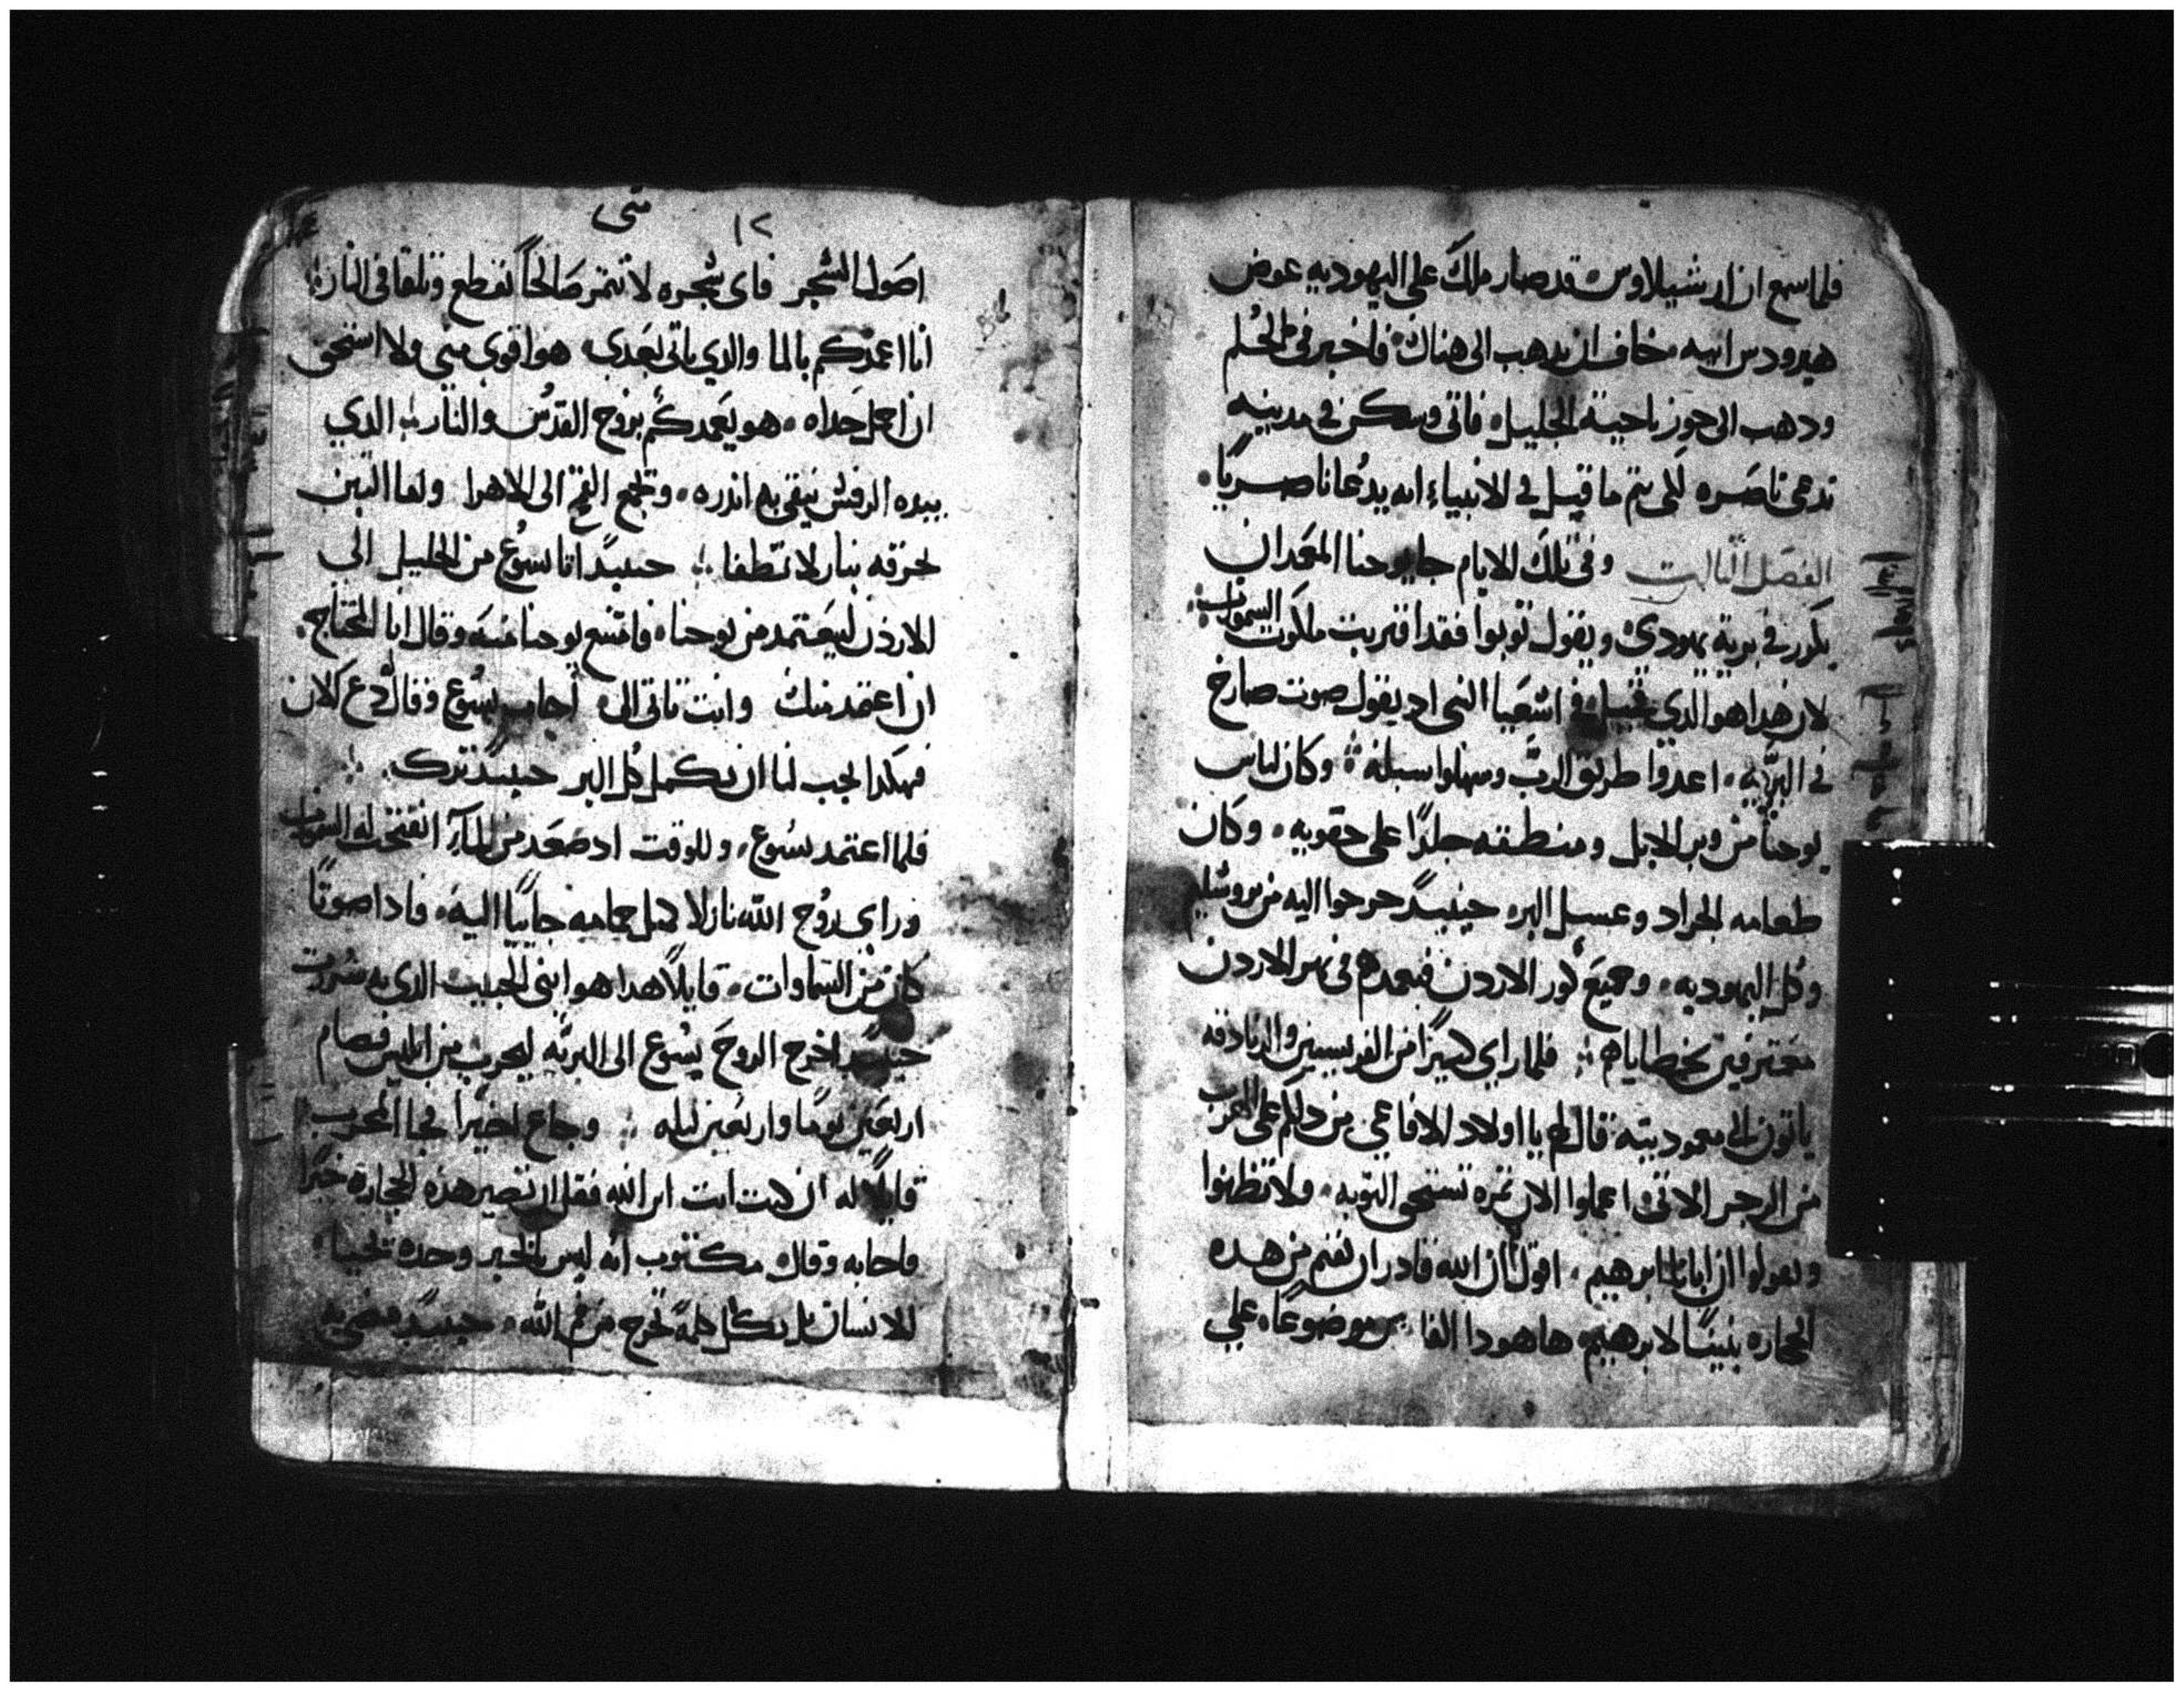 فلما سمع ان ارشيلاوس قد صار ملك على اليهوديه عوض
هيرودس ابيه خاف ان يدهب الى هناك فاخبر في الحلم
ودهب الى حوز ناحية الجليل فاتى وسكن في مدينه
تدعى ناصره لكى يتم ما قيل في الانبياء انه يدعا ناصريا
الفصل الثالث وفى تلك الايام جا يوحنا المعمدان
يكرر في برية يهودى ويقول توبوا فقد اقتربت ملكوت السموات
لان هدا هو الدي قيل في اشعيا النبى اد يقول صوت صارخ
في البريه اعدوا طريق الرب وسهلوا سبله وكان لباس
يوحنا من وبر الابل ومنطقه جلدا على حقويه وكان
طعامه الجراد وعسل البر حينيد خرجوا اليه من يروشليم
وكل اليهوديه وجميع كور الاردن فيعمدهم في نهر الاردن
معترفين بخطاياهم فلما راي كثيرا من الفريسيين والزنادقه
ياتون الى معموديته قال لهم يا اولاد الافاعي من دلكم على الهرب
من الرجز الاتى اعملوا الان ثمره تستحق التوبه ولا تظنوا
وتقولوا ان ابانا ابرهيم اقول ان الله قادر ان يقيم من هده
الحجاره بنينا لابرهيم ها هودا الفا س موضوعا على
١٢ متى
اصول الشجر فاى شجره لا تثمر صالحا تقطع وتلقا في النار
انا اعمدكم بالما والدي ياتى بعدى هو اقوى منى ولا استحق
ان احمل حداه هو يعمدكم بروح القدس والنار الدي
بيده الرفش ينقى به اندره ويجمع القمح الى الاهرا واما التبن
يحرقه بنار لا تطفا حينيد اتا يسوع من الجليل الى
الاردن ليعتمد من يوحنا فامتنع يوحنا منه وقال انا المحتاج
ان اعتمد منك وانت تاتى الى اجاب يسوع وقال دع الان
فهكدا يجب لنا ان نكمل كل البر حينيد تركه
فلما اعتمد يسوع وللوقت اد صعد من الماء انفتحت له السموات
وراى روح الله نازلا كمثل حمامه جاييا اليه فادا صوتا
كان من السماوات قايلا هدا هو ابنى الحبيب الدي به سررت
حينيد اخرج الروح يسوع الى البريه ليجرب من ابليس فصام
اربعين يوما واربعين ليله وجاع اخيرا فجا المجرب
قايلا له ان كنت انت ابن الله فقل ان تصير هذه الحجاره خبزا
فاجابه وقال مكتوب انه ليس بالخبز وحده يحيا
الانسان بل بكل كلمة تخرج من فم الله حينيد مضى به